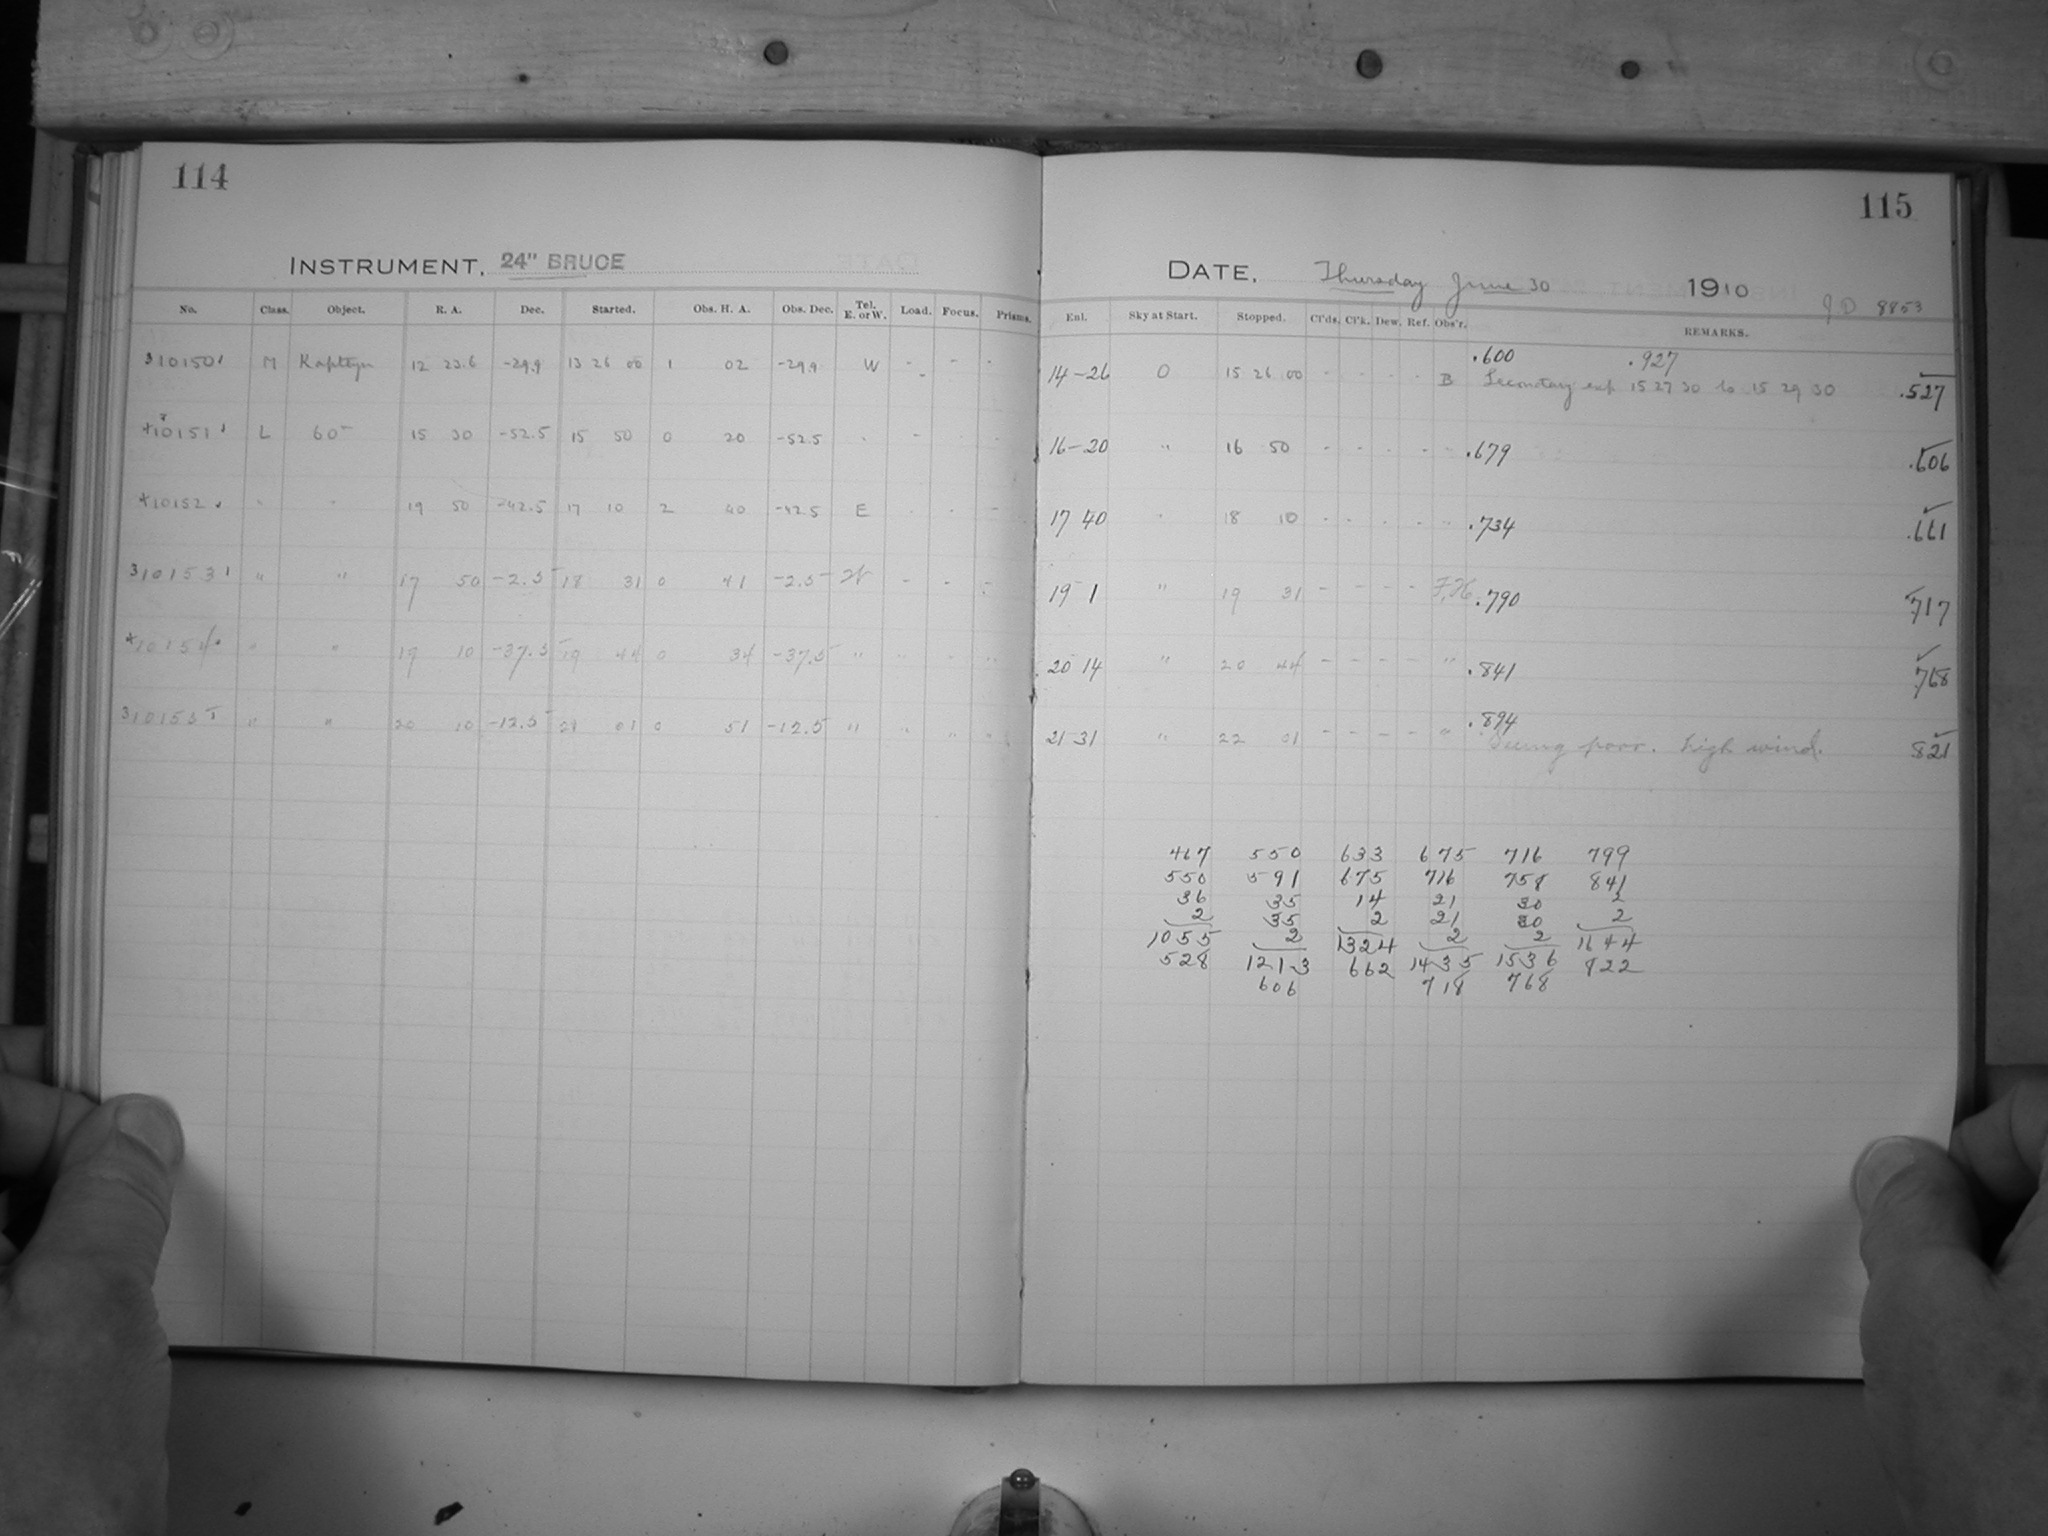 114
INSTRUMENT. 24" BRUCE
No. Class. Object. R. A. Dec. Started. Obs. H. A. Obs. Dec. Tel. E. or W. Load. Focus. Prisms.
310150 M Kapteyn 12 23.6 -29.9 13 26 00 1 02 -29.9 W - - -
10151 L 60 15 30 -52.5 15 50 0 20 -52.5
10152 " " 19 50 -42.5 17 10 2 40 -42.5 E
310153 " " 17 50 -2.5 18 31 0 41 -2.5 W - - -
10154 " " 19 10 -37.5 19 44 0 34 -37.5 " " - "
310155 " " 20 10 -12.5 21 01 0 51 -12.5 " " " "
115
DATE. Thursday June 30 1910 JD 8853
Enl. Sky at Start. Stopped. Cl'ds. Cl'k. Dew. Ref. Obs'r. REMARKS.
14-26 0 15 26 00 - - - - B .600 .927
Secondary exp 15 27 30 to 15 29 30 .527
16-20 " 16 50 - - - - - .679 .606
17 40 " 18 10 - - - - - .734 .661
19 1 " 19 31 - - - - F.H. .790 717
20 14 " 20 44 - - - - " .841 768
21 31 " 22 01 - - - - " .894
Seeing poor. high wind. 821
467 550 633 675 716 799
550 591 675 716 758 841
36 35 14 21 30 2
2 35 2 21 30 2
1055 2 1324 2 2 1644
528 1213 662 1435 1536 822
606 718 768